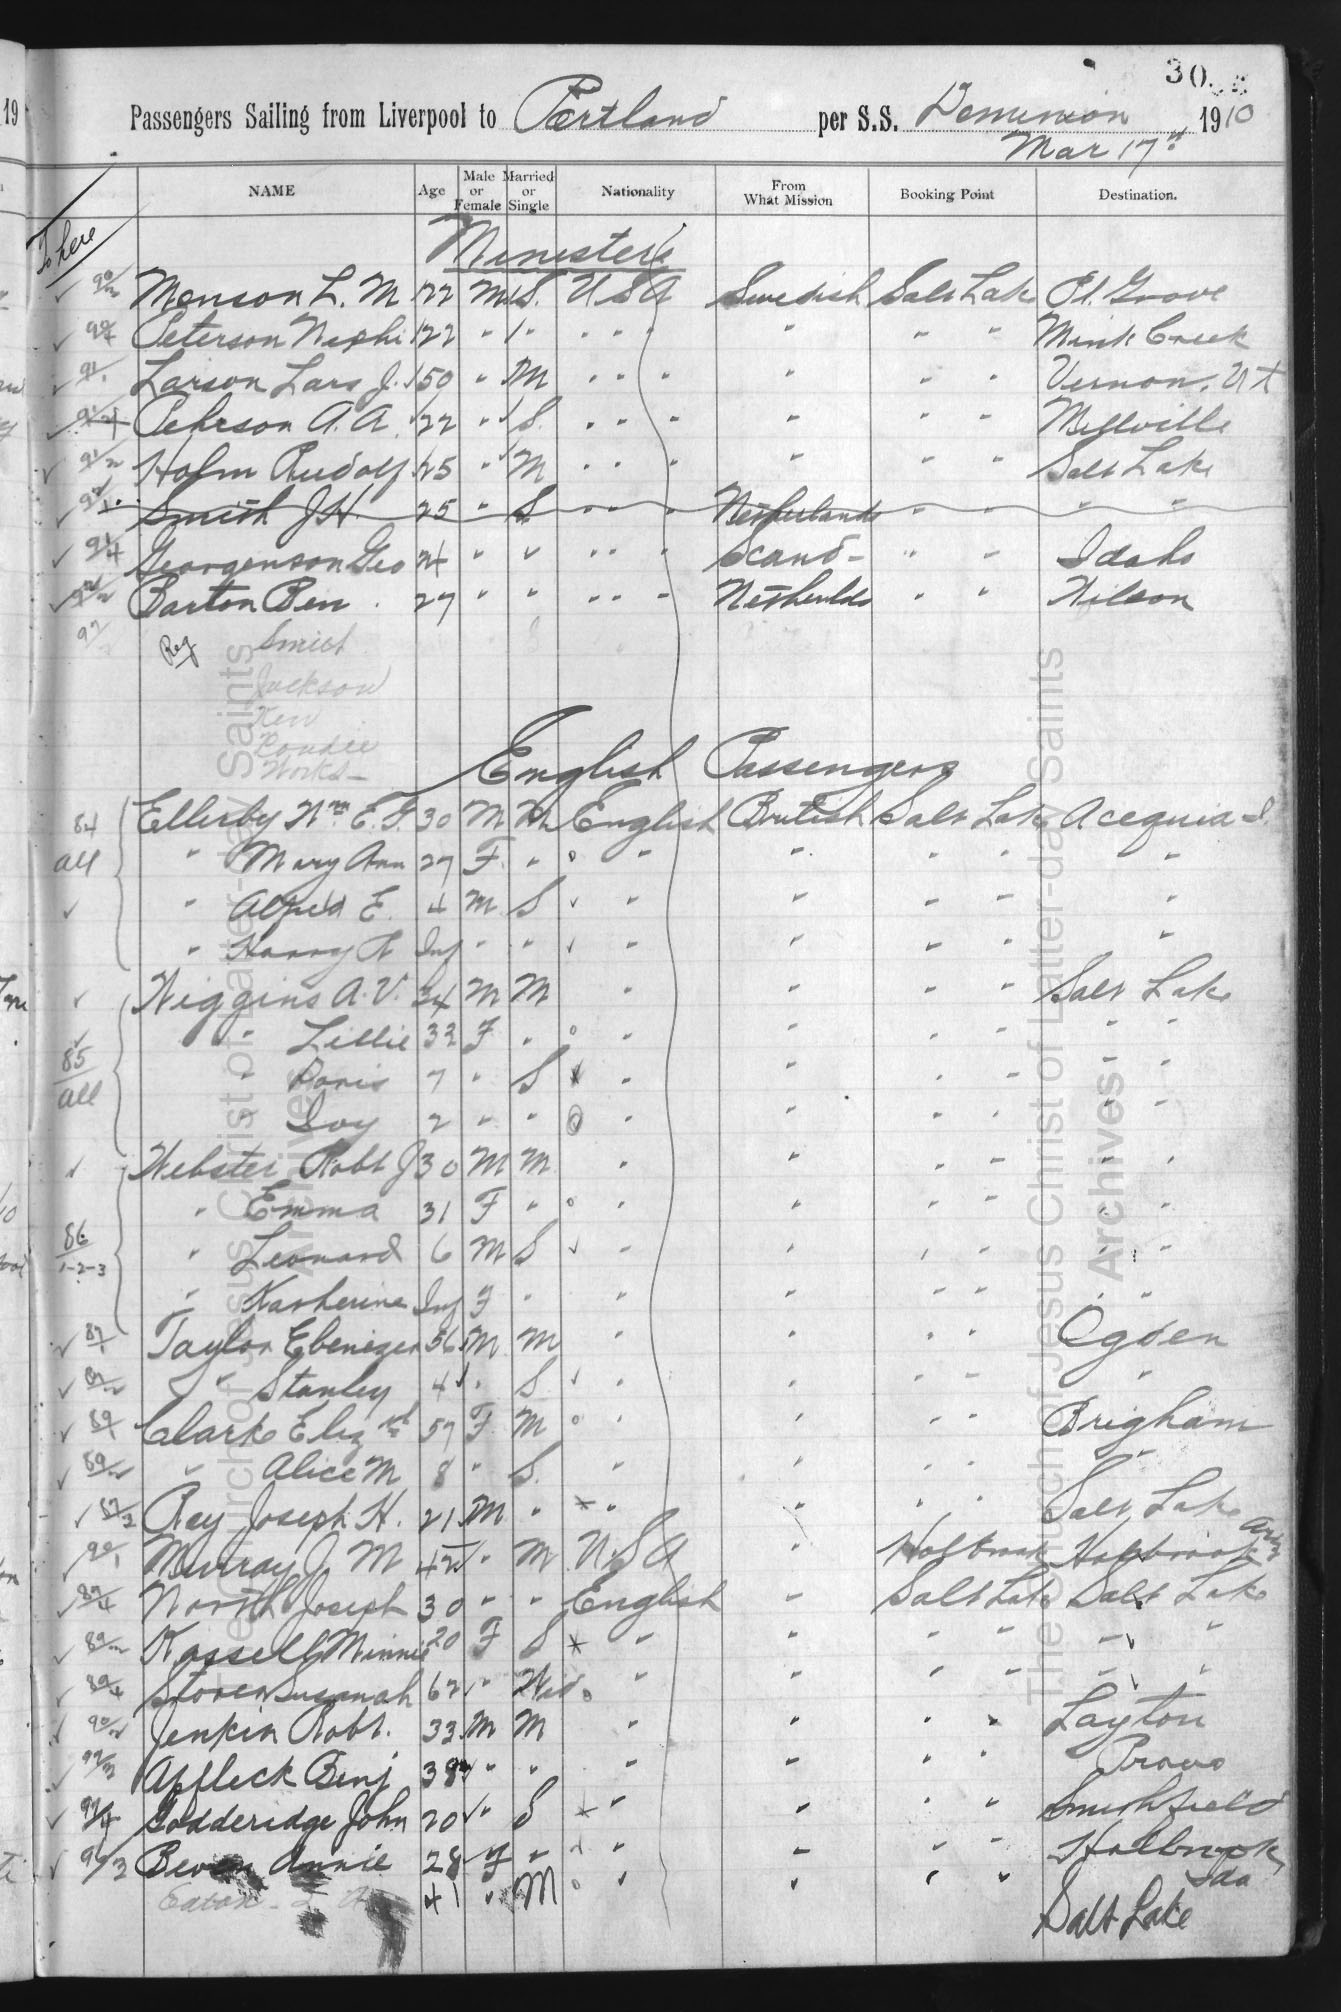 30
Passengers Sailing from Liverpool to Portland per S.S. Dominion 1910
Mar 17th
NAME Age Male or Female Married or Single Nationality From What Mission Booking Point Destination.
To here
Ministers
✓ 90/3 Monson L. M 22 M S. U S A Swedish Salt Lake Pl. Grove
✓ 90/4 Peterson Nephi 22 " " " " " " " " Mink Creek
✓ 91/1 Larson Lars J. 50 " M " " " " " " Vernon, Ut
✓ Pehrson A. A. 22 " S. " " " " " " Millville
✓ 91/2 Holm Rudolf 25 " M " " " " " " Salt Lake
✓ Smith J H. 25 " S " " " Netherlands " " " "
✓ 91/4 Georgenson Geo 24 " " " " " Scand- " " Idaho
✓ 92/2 Barton Ben 27 " " " " " Netherlds " " Wilson
Reg Smith
Jackson
Ken
Works
English Passengers
84 Ellerby Wm E. F. 30 M M English British Salt Lake Acequia I.
all " Mary Ann 27 F. " " " " " "
✓ " Alfred E. 4 M S " " " " "
" Harry H Inf " " " " " " "
✓ Wiggins A. V. 34 M M " " " " Salt Lake
✓ " Lillie 33 F " " " " " " "
85 " Doris 7 " S " " " " " "
all " Ivy 2 " " " " " " " "
✓ Webster Robt J 30 M M " " " " " "
" Emma 31 F " " " " " " "
86 " Leonard 6 M S " " " " " "
1-2-3
" Katherine Inf F " " " " " " "
✓ 87/1 Taylor Ebenezer 56 M M " " " " Ogden
✓ 87/2 " Stanley 4 " S " " " " "
✓ 89/1 Clark Elizth 57 F M " " " " Brigham
✓ 89/2 " Alice M 8 " S. " " " " "
✓ 87/3 Ray Joseph H. 21 M " " " " " Salt Lake
✓ 90/1 Murray J. M 42 " M U. S A " Holbrook Holbrook Ariz
✓ 87/4 North Joseph 30 " " English " Salt Lake Salt Lake
✓ Kassell Minnie 20 F S " " " " " "
✓ 89/4 Storer Susanah 62 " Wid. " " " " " "
✓ 90/2 Jenkin Robt. 33 M M " " " " Layton
✓ Affleck Benj 38 " " " " " " Provo
✓ Godderidge John 20 " S " " " " Smithfield
✓ Beven Annie 28 F " " " " " Holbrook, Ida
Eaton 41 " M " " " " Salt Lake
The Church of Jesus Christ of Latter-day Saints
Archives
The Church of Jesus Christ of Latter-day Saints
Archives